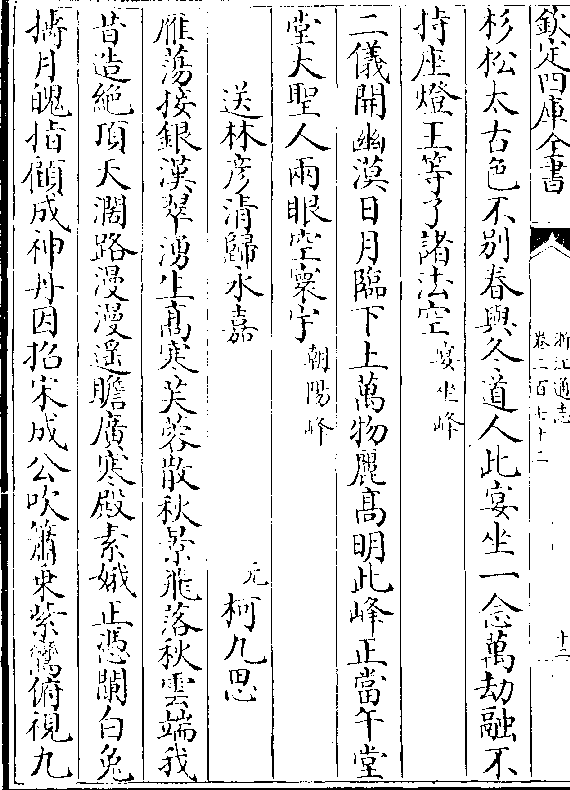 欽定四庫全書
浙江通志
卷二百七十二
十二
杉松太古色不別春與冬道人此宴坐一念萬劫融不
持座燈王等了諸法空宴坐峰
二儀開幽漠日月臨下上萬物麗高明此峰正當午堂
堂大聖人兩眼空寰宇朝陽峰
送林彥清歸永嘉
元柯九思
雁蕩接銀漢翠湧生高寒芙蓉散秋景飛落秋雲端我
昔造絶頂天濶路漫漫遥瞻廣寒殿素娥正憑闌白兔
擣月魄指顧成神丹因招宋成公吹簫乗紫鸞俯視九